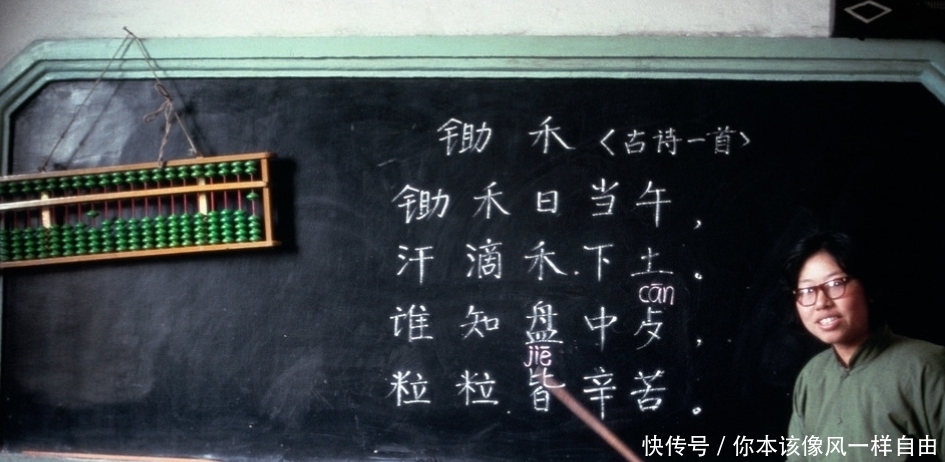 锄禾〈古诗一首〉
锄禾日当午，
汗滴禾下土。
cān
谁知盘中歺，
jiē
粒粒皆辛苦。
快传号 / 你本该像风一样自由